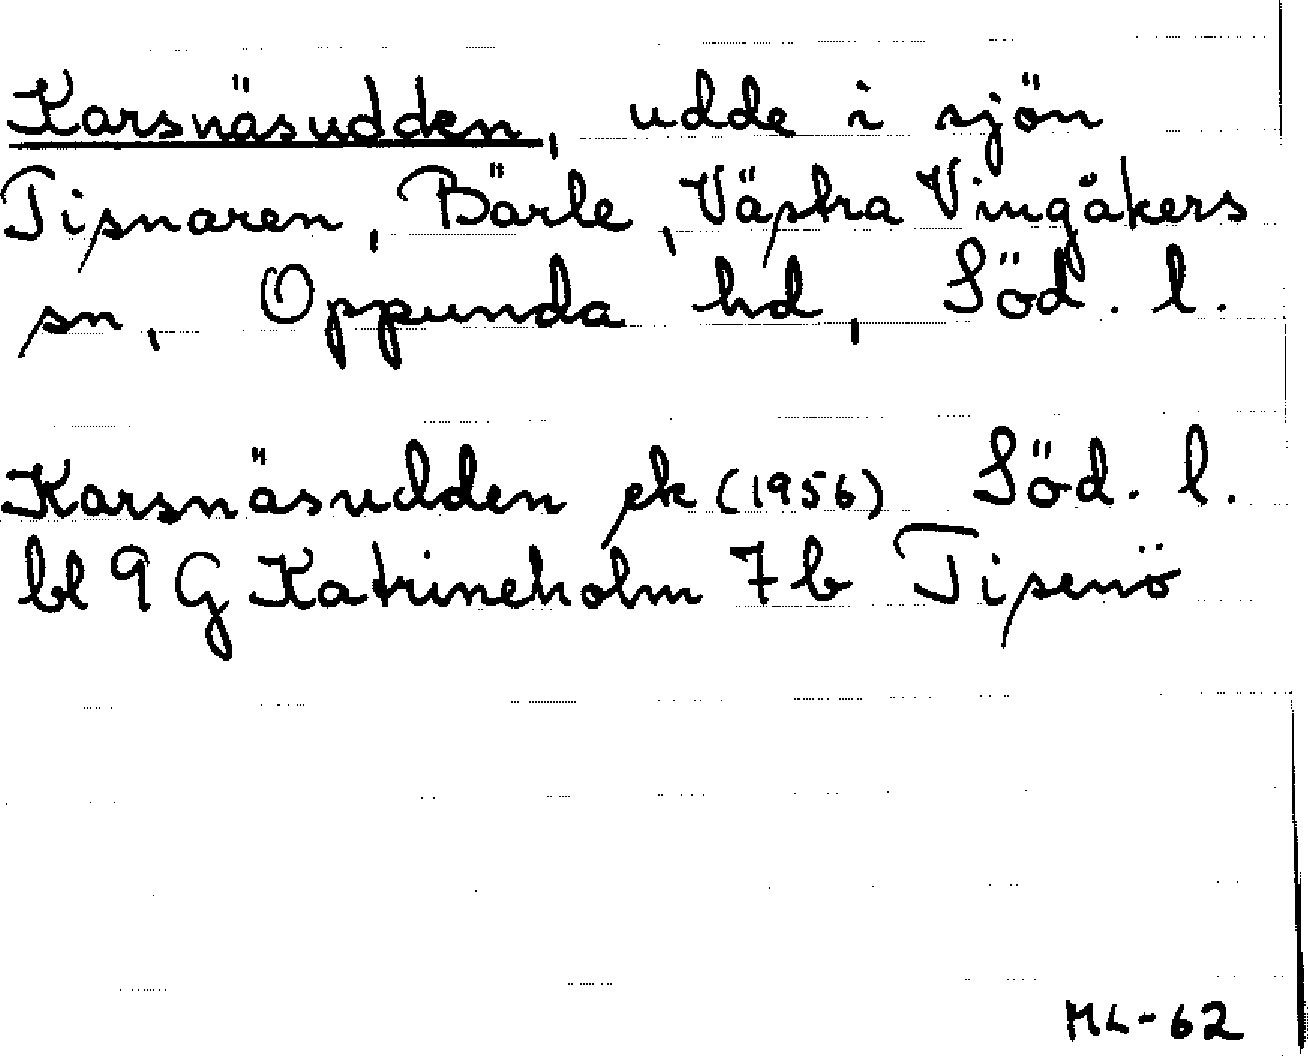 Karsnäsudden, udde i sjön
Tisnaren, Bärle, Västra Vingåkers
sn, Oppunda hd, Söd. l.
Karsnäsudden ek (1956) Söd. l.
bl 9 G Katrineholm 7 b Tisenö
ML-62